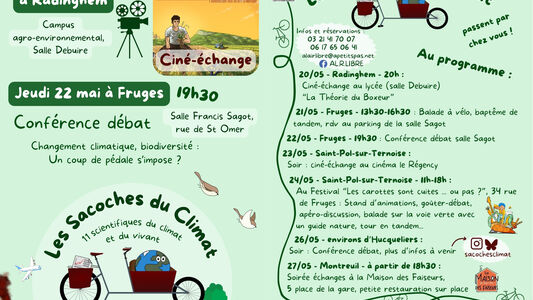 à Radinghem
Campus
agro-environnemental,
Salle Debuire
Ciné-échange
Jeudi 22 mai à Fruges 19h30
Conférence débat
Salle Francis Sagot,
rue de St Omer
Changement climatique, biodiversité :
Un coup de pédale s'impose ?
Les Sacoches du Climat
11 scientifiques du climat
et du vivant
passent par
chez vous !
Infos et réservations
03 21 41 70 07
06 17 65 06 41
alairlibre@apetitspas.net
AL'R.LIBRE
Au programme :
20/05 - Radinghem - 20h :
Ciné-échange au lycée (salle Debuire)
"La Théorie du Boxeur"
21/05 - Fruges - 13h30-16h30 : Balade à vélo, baptême de
tandem, rdv au parking de la salle Sagot
22/05 - Fruges - 19h30 : Conférence débat salle Sagot
23/05 - Saint-Pol-sur-Ternoise :
Soir : ciné-échange au cinéma le Régency
24/05 - Saint-Pol-sur-Ternoise - 11h-18h :
Au Festival "Les carottes sont cuites ... ou pas ?", 34 rue
de Fruges : Stand d'animations, goûter-débat,
apéro-discussion, balade sur la voie verte avec
un guide nature, tour en tandem...
26/05 - environs d'Hucqueliers :
Soir : Conférence débat, plus d'infos à venir
sacochesclimat
27/05 - Montreuil - à partir de 18h30 :
Soirée échanges à la Maison des Faiseurs,
5 place de la gare, petite restauration sur place
La
MAISON
DES FAISEURS